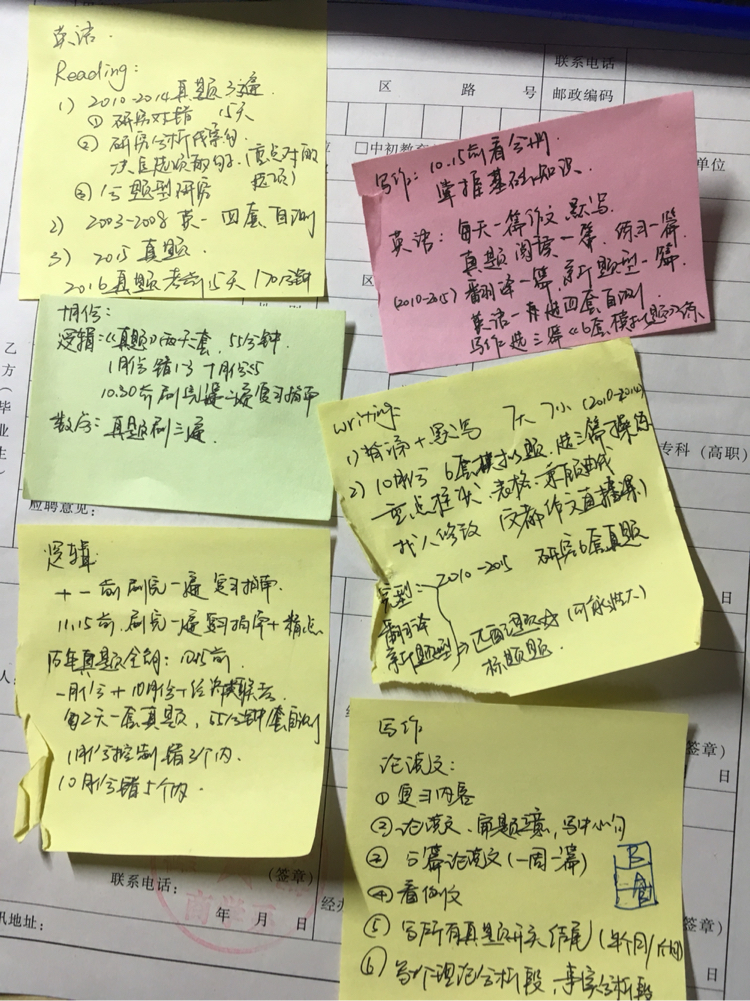 英语
Reading:
1) 2010-2014真题3遍
① 研究对错 15天
② 研究分析
(重点对的选项)
③ 题型研究
2) 2003-2008 英一 四套自测
3) 2015 真题
2016真题考前15天 170分钟
写作: 10.15前看
掌握基础知识.
英语: 每天一篇作文, 默写
真题阅读一篇. 练习一篇
(2010-2015) 翻译一篇, 新题型一篇.
英语一 真题四套自测
写作选三篇《6套模拟题》练
十月份:
逻辑:《真题》两天一套, 55分钟
11月份错1-3 10月份<5
10.30前刷完一遍复习指南
数学: 真题刷三遍.
Writing:
1) 背诵+默写 大 小 (2010-2014)
2) 10月份 6套模拟题, 选三篇
重点柱状 表格
找人修改 (文都作文直播课)
完型: 2010-2015 研究6套真题
翻译
新题型 匹配 (可能性大)
标题题
逻辑
十一前刷完一遍复习指南.
11.15前, 刷完一遍复习指南+精点
历年真题全刷:
每2天一套真题, 55分钟一套自测
11月份控制错3个内.
10月份错5个内.
写作
论说文:
① 复习内容
② 论说文、审题立意, 写中心句
③ 5篇论说文(一周一篇)
④ 看例文
⑤ 写所有真题开头结尾
⑥ 写个理论分析段, 事实分析段
B
A
联系电话
区 路 号
邮政编码
□中初教育
单位
乙方(毕业生)
专科(高职)
应聘意见:
日
(签章)
日
(签章)
联系电话:
年 月 日
经办
讯地址:
(签章)
日